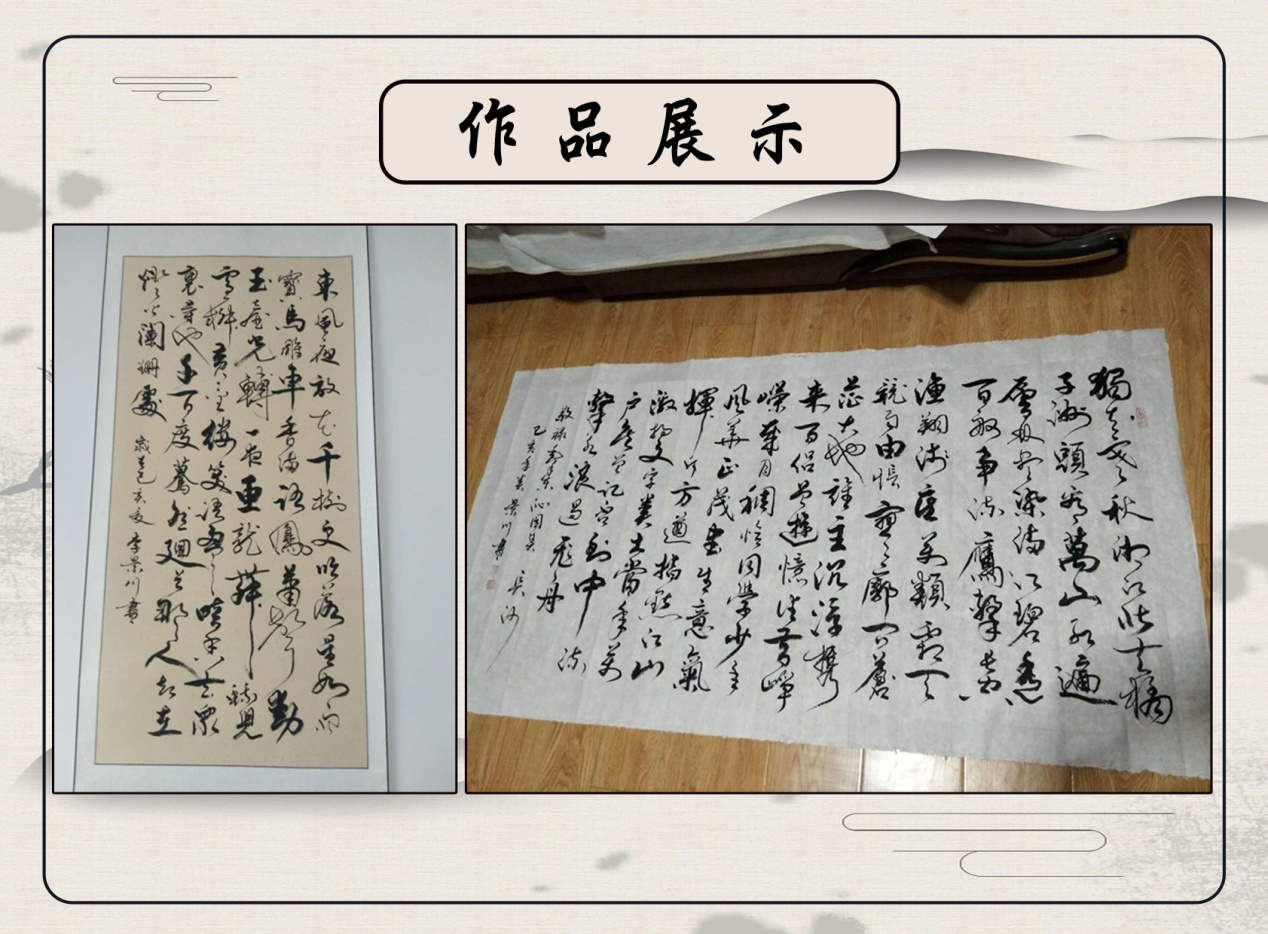 作品展示
東風夜放花千樹更吹落星如雨
寶馬雕車香滿路鳳簫聲動
玉壺光轉一夜魚龍舞蛾兒
雪柳黃金縷笑語盈盈暗香去眾
裏尋他千百度驀然迴首那人却在
燈火闌珊處
歲在己亥夏李景川書
獨立寒秋湘江北去橘
子洲頭看萬山紅遍
層林盡染漫江碧透
百舸爭流鷹擊長空
漁翔淺底萬類霜天
競自由悵寥廓問蒼
茫大地誰主沉浮攜
來百侶曾遊憶往昔崢
嶸歲月稠恰同學少年
風華正茂書生意氣
揮斥方遒指點江山
激揚文字糞土當年萬
戶侯曾記否到中流
擊水浪遏飛舟
沁園春 長沙
己亥年 景川書